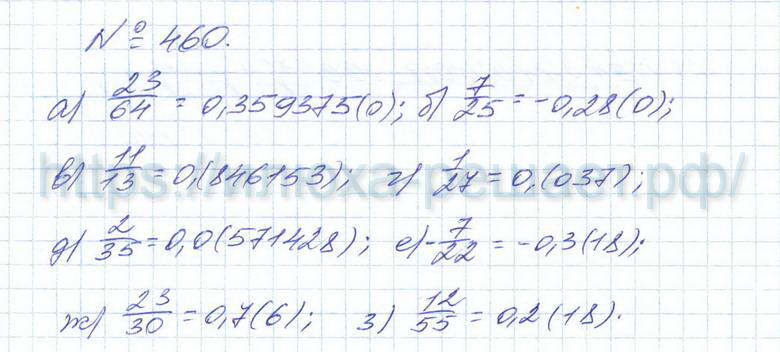 № 460.
а) 23/64 = 0,359375(0); б) 7/25 = -0,28(0);
в) 11/13 = 0,(846153); г) 1/27 = 0,(037);
https://плоха-решает.рф/
д) 2/35 = 0,0(571428); е) -7/22 = -0,3(18);
ж) 23/30 = 0,7(6); з) 12/55 = 0,2(18).